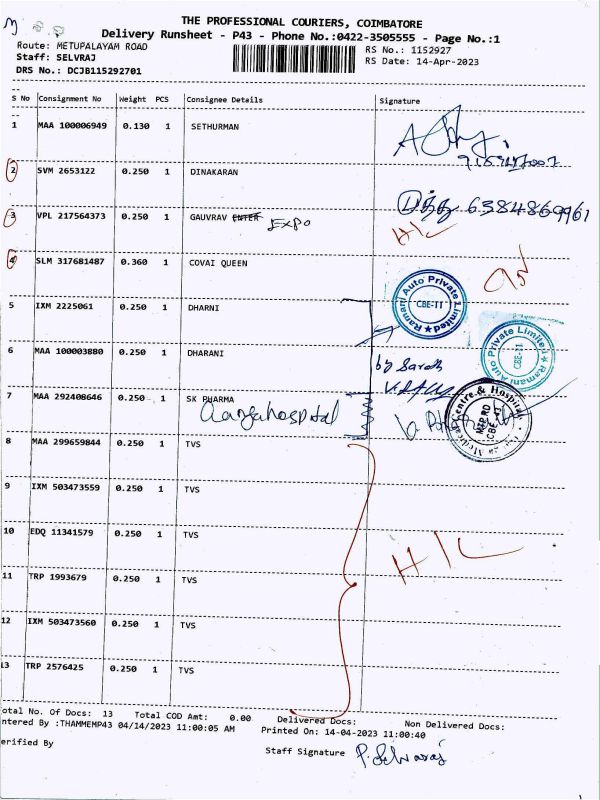 THE PROFESSIONAL COURIERS, COIMBATORE
Delivery Runsheet - P43 - Phone No.:0422-3505555 - Page No.:1
Route: METUPALAYAM ROAD
RS No.: 1152927
Staff: SELVRAJ
RS Date: 14-Apr-2023
DRS No.: DCJB115292701
S No Consignment No Weight PCS Consignee Details Signature
1 MAA 100006949 0.130 1 SETHURMAN
2 SVM 2653122 0.250 1 DINAKARAN
6384869961
3 VPL 217564373 0.250 1 GAUVRAV ENTER EXPO
H/L
4 SLM 317681487 0.360 1 COVAI QUEEN
Ramani Auto Private Limited
CBE-11
5 IXM 2225061 0.250 1 DHARNI
Ramani Auto Private Limited
CBE-11
6 MAA 100003880 0.250 1 DHARANI
by Sarath
7 MAA 292408646 0.250 1 SK PHARMA
Aanyahospital
Medical Centre & Hospital
MTP RD
CBE -43
8 MAA 299659844 0.250 1 TVS
9 IXM 503473559 0.250 1 TVS
10 EDQ 11341579 0.250 1 TVS
H/L
11 TRP 1993679 0.250 1 TVS
12 IXM 503473560 0.250 1 TVS
13 TRP 2576425 0.250 1 TVS
otal No. Of Docs: 13 Total COD Amt: 0.00 Delivered Docs: Non Delivered Docs:
ntered By :THAMMEMP43 04/14/2023 11:00:05 AM Printed On: 14-04-2023 11:00:40
erified By
Staff Signature P. Selvaraj